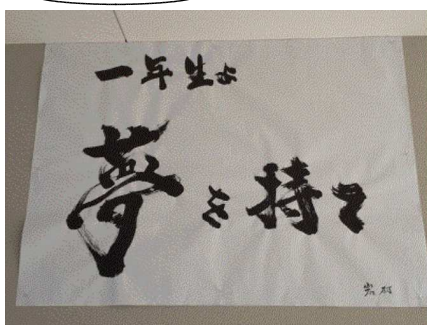 一年生よ
夢を持て